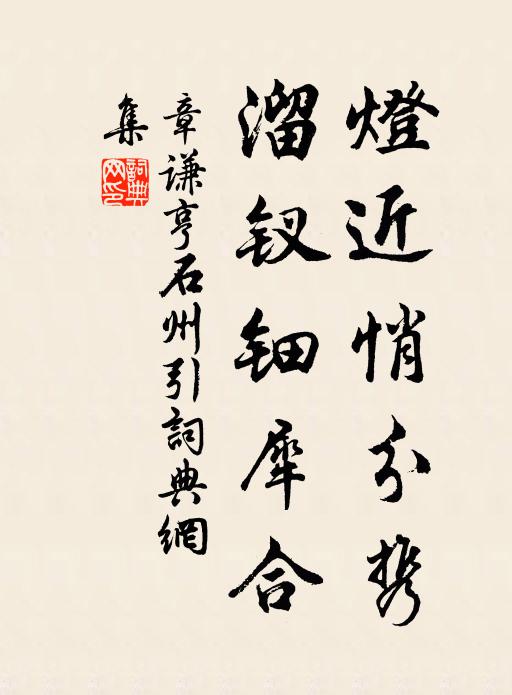 燈近悄分携
溜釵鈿犀合
章謙亨石州引詞典網
集
詞典網印